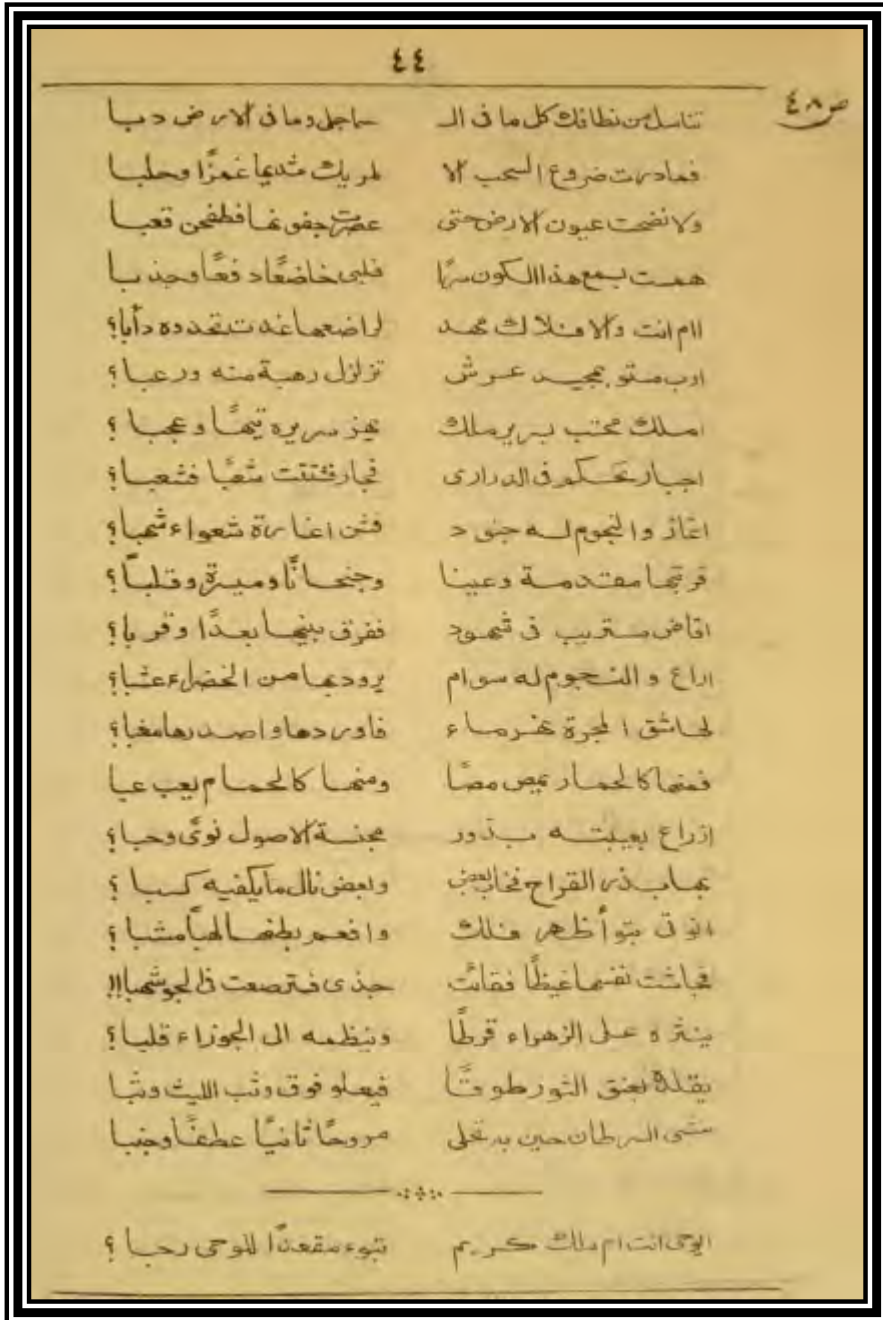 ٤٤
ص ٤٨
تناسل من نطافك كل ما فى الـ ـساجل وما فى الارض دبـا
فما درت ضروع السحب الا لمريك ثديها غمزًا وحلبـا
ولا نضحت عيون الارض حتى عصرت جفونها فطفحن قعبـا
همست بسمع هذا الكون سرًا فلبى خاضعًا دفعًا وجذبـا
اام انت والافلاك مهد لراضعها غدت تتعهده دأبا؟
ارب مستو بمجيد عرش تزلزل رهبة منه ورعبا؟
املك محتب بسرير ملك يهز سريره تيهًا وعجبا ؟
اجبار تحكم فى الدرارى فجار فشتتت شعبًا فشعبـا؟
اغاز والنجوم له جنود فشن اغارة شعواء شهبا؟
فرتبها مقدمة وعينا وجنحانًا وميسرة وقلبًا؟
اقاض مستريب فى شهود ففرق بينها بعدًا وقربا؟
اراع والنجوم له سوام يرود بها من الخضراء عشبا؟
لحاشق المجرة نهر ماء فاوردها واصدرها مغبا؟
فمنها كالحمار يمص مصًا ومنها كالحمام يعب عبا
ازراع بعيبته بذور مجنسة الاصول نوًى وحبا؟
بها بذر القراح فخاب بعض وبعض نال ما يكفيه كسبا ؟
فجاشت نفسها غيظًا فقاءت جذى فترصعت فى الجو شهبا!!
ينثره على الزهراء قرطًا وينظمه الى الجوزاء قلبا؟
يقلده بعنق الثور طوقًا فيعلو فوق وثب الليث وثبا
مشى السرطان حين به تحلى مروحًا ثانيًا عطفًا وجنبا
اوحى انت ام ملك كريم تبوء مقعدًا للوحى رحبا ؟